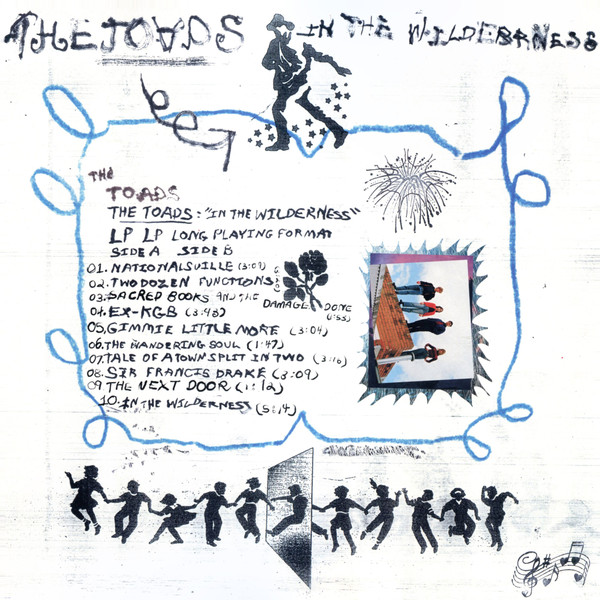 THE TOADS IN THE WILDERNESS
THE
TOADS
THE TOADS: "IN THE WILDERNESS"
LP LP LONG PLAYING FORMAT
SIDE A SIDE B
01. NATIONALSVILLE (3:09)
02. TWO DOZEN FUNCTIONS
03. SACRED BOOKS AND THE DAMAGE DONE
04. EX-KGB (3:48)
05. GIMMIE LITTLE MORE (3:04)
06. THE WANDERING SOUL (1:47)
07. TALE OF A TOWN SPLIT IN TWO (3:16)
08. SIR FRANCIS DRAKE (3:09)
09 THE NEXT DOOR (1:12)
10. IN THE WILDERNESS (5:14)